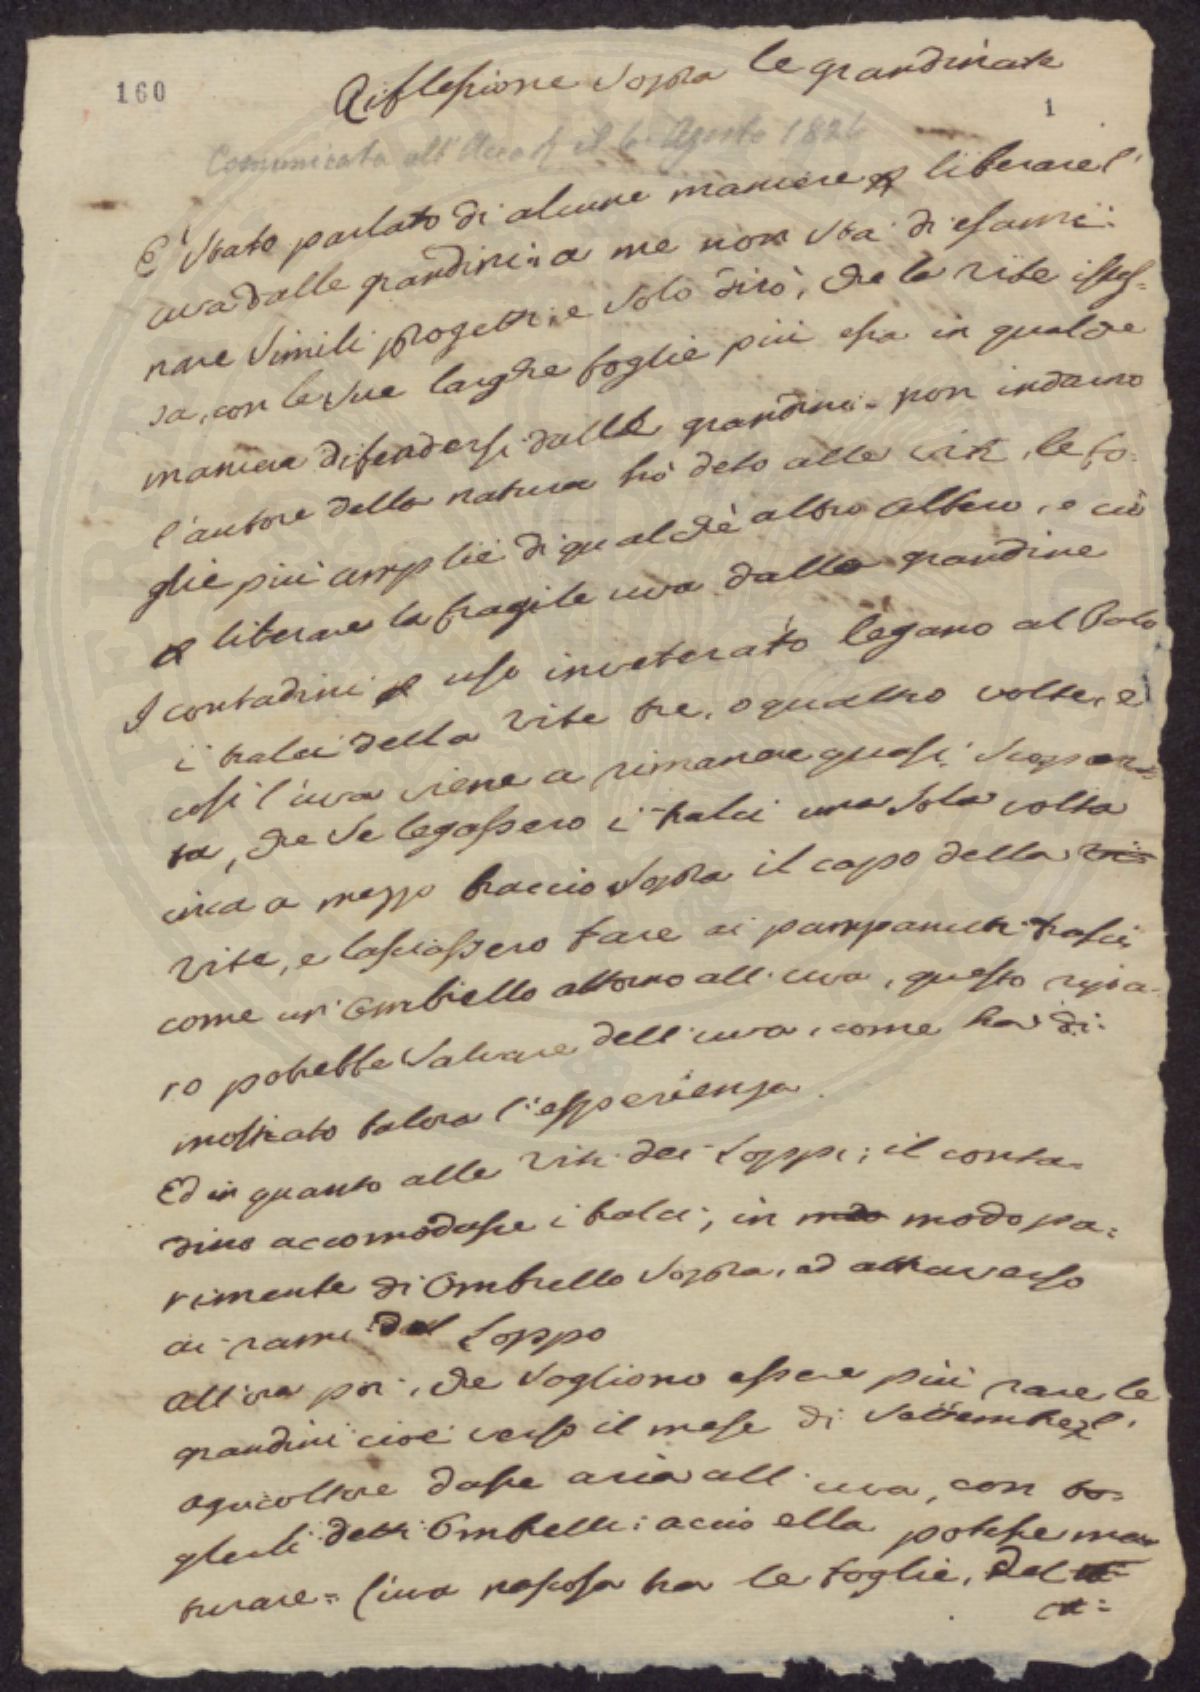 160
Riflessione sopra le grandinate
1
Comunicata all'Accad. il 6 Agosto 182
E' stato parlato di alcune maniere p liberare l'
uva dalle grandini: a me non sta di esami:
nare simili progetti: e solo dirò, che la vite istes=
sa, con le sue larghe foglie più essa in qualche
maniera difendersi dalle grandini. non indarno
l'autore della natura hà dato alle viti, le fo=
glie più ampie di qualche altro albero, e ciò
p liberare la fragile uva dalla grandine
I contadini p uso inveterato legano al Palo
i tralci della vite tre, o quattro volte, e
così l'uva viene a rimanere quasi scoper=
ta, che se legassero i tralci una sola volta
circa a mezzo braccio sopra il capo della
vite, e lasciassero fare ai pampanuti tralci
come un' ombrello attorno all'uva, questo ripa=
ro potrebbe salvare dell'uva, come ha di:
mostrato talora l'esperienza.
Ed in quanto alle viti dei Loppi; il conta=
dino accomodasse i tralci, in mdo modo pa=
rimente di ombrello sopra, ed attraverso
ai rami del Loppo
Allora poi, che sogliono essere più rare le
grandini cioè verso il mese di Settembre l'
agricoltore dasse aria all'uva, con to=
glierli detti ombrelli: acciò ella potesse ma=
turare = l'uva nascosa tra le foglie, dal